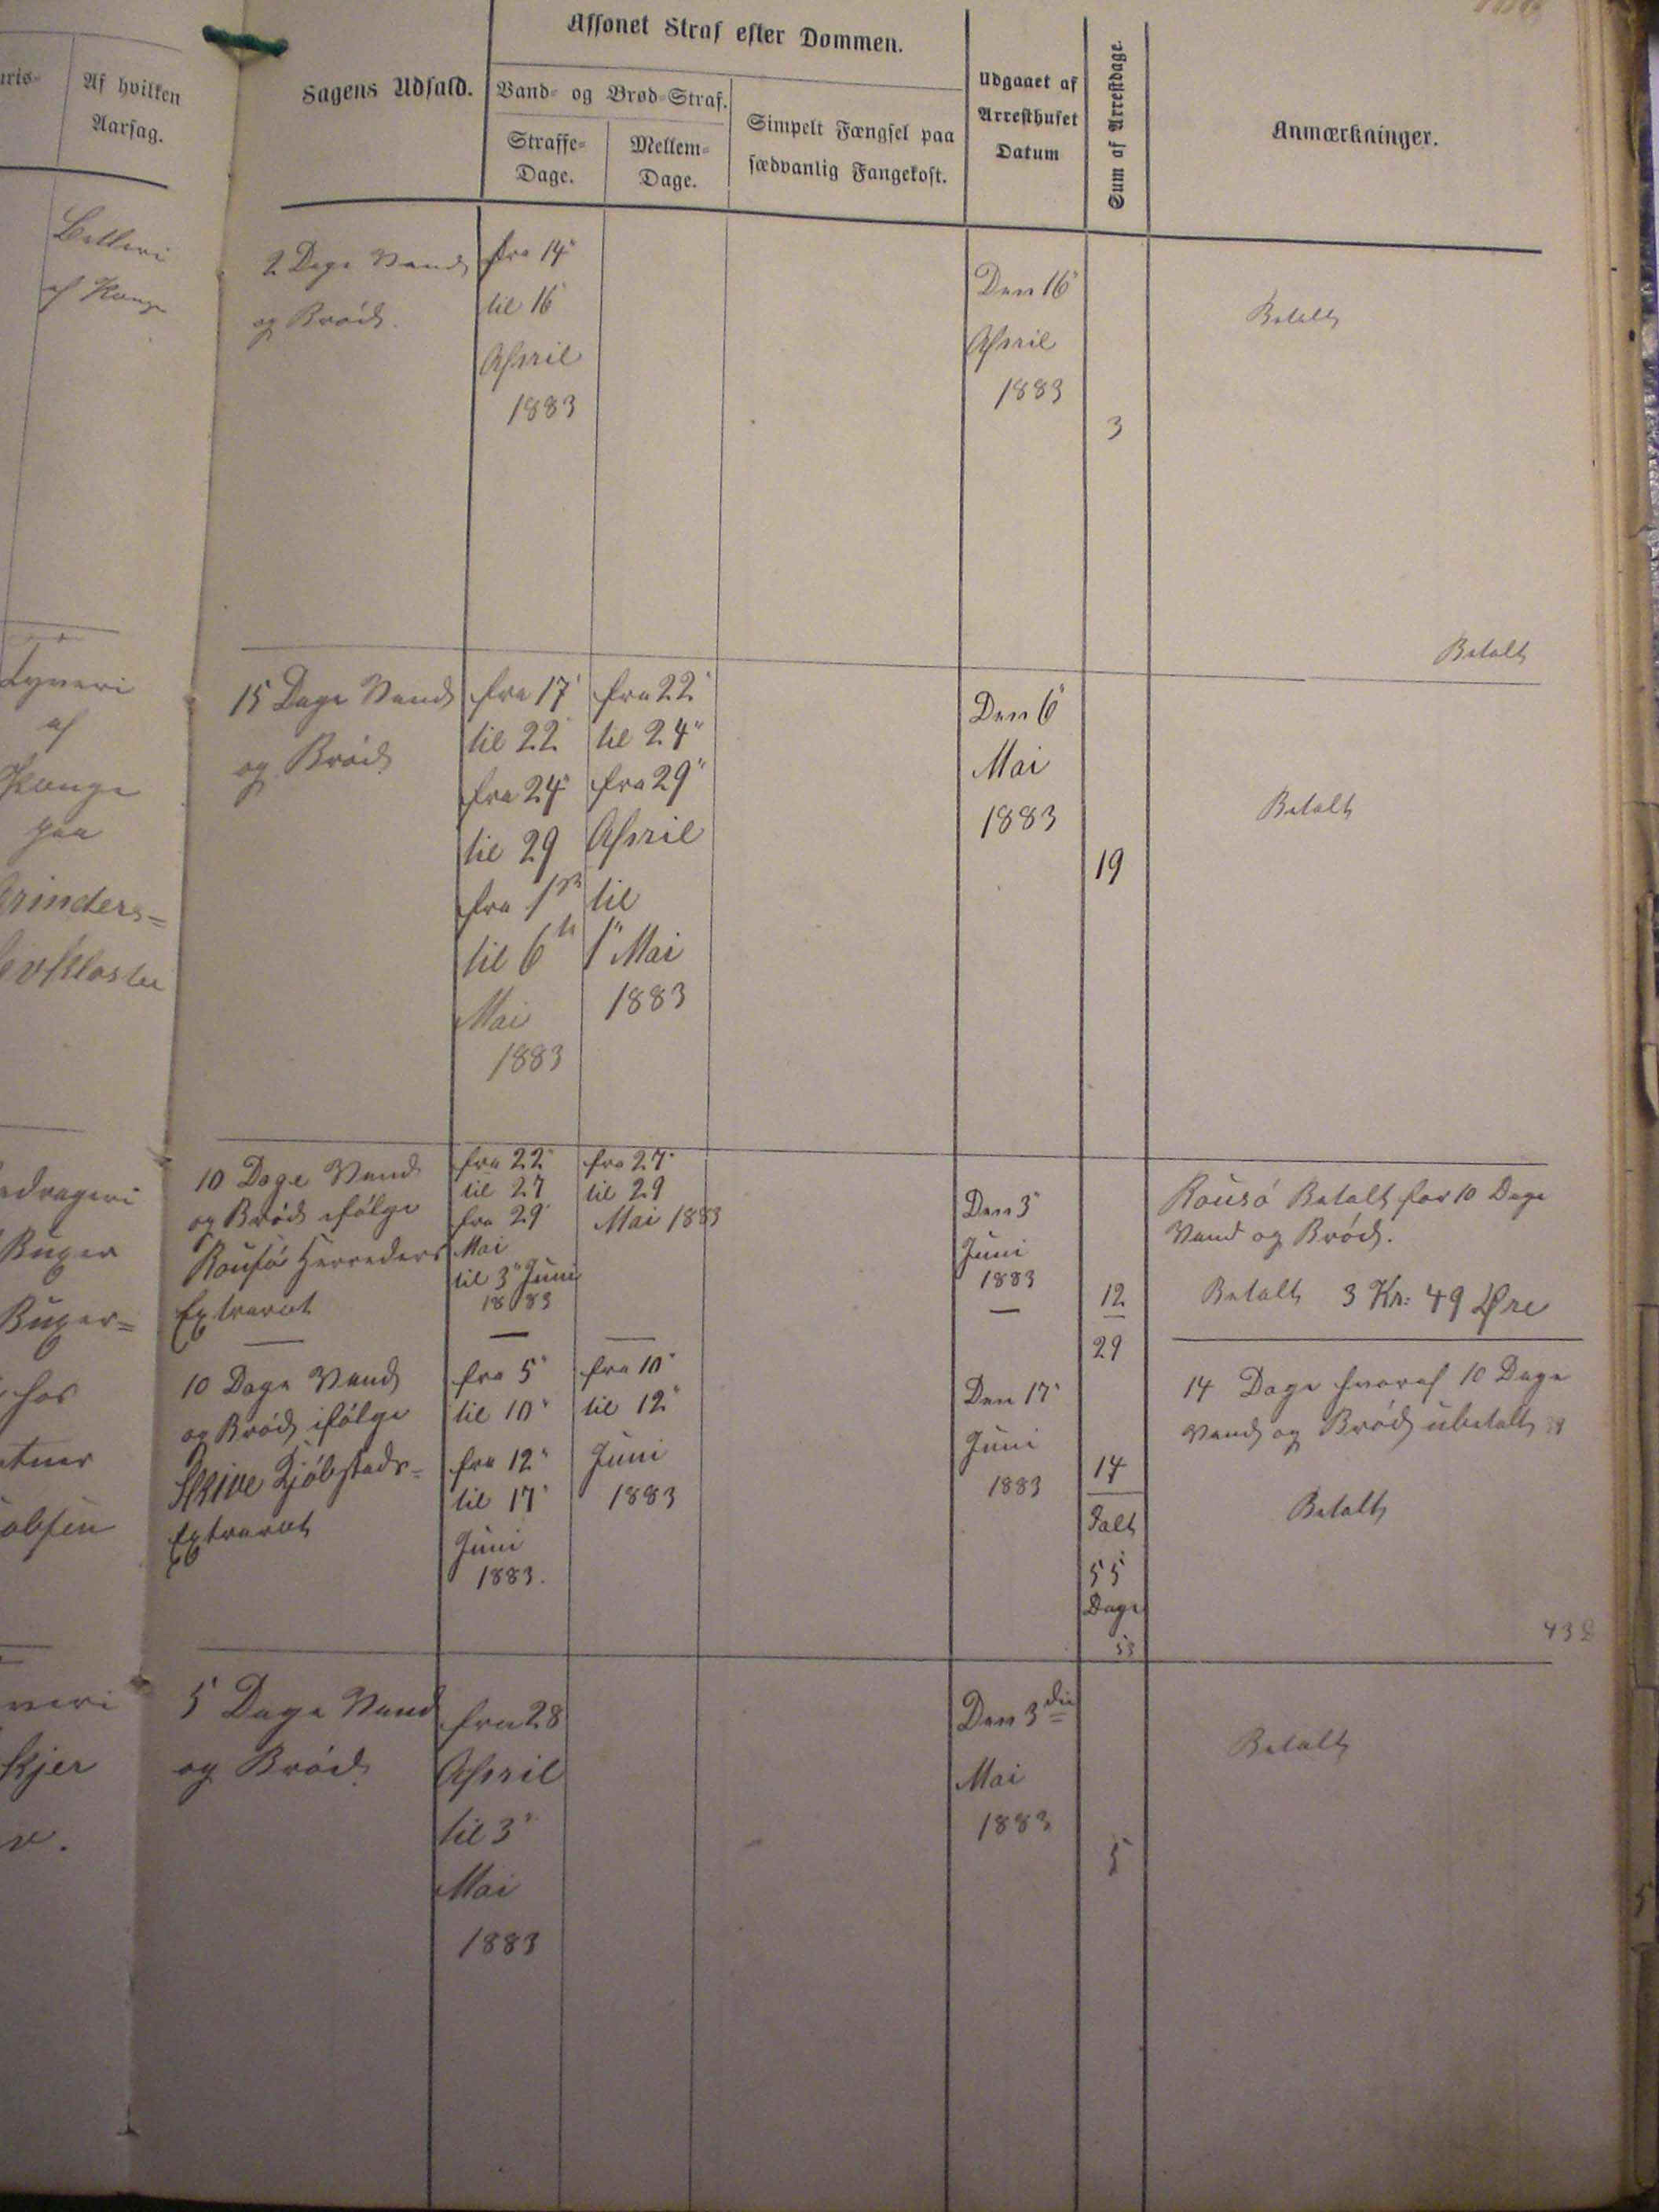 Af hvilken
Aarsag.
Sagens Udfald.
Afsonet Straf efter Dommen.
Vand- og Brød-Straf.
Straffe-
Dage.
Mellem-
Dage.
Simpelt Fængsel paa
sædvanlig Fangekost.
Udgaaet af
Arresthuset
Datum
Sum af Arrestdage.
Anmærkninger.
Betleri
2 Dage Vand
og Brød.
fra 14"
til 16
April
1883
Den 16"
April
1883
3
Betalt
Betalt
af
paa
15 Dage Vand
og Brød
fra 17
til 22
fra 24"
til 29
fra 1
til 6
Mai
1883
fra 22
til 24"
fra 29"
April
til
1" Mai
1883
Den 6
Mai
1883
19
Betalt
10 Dage Vand
og Brød ifølge
Rousø Herreders
Extraret
fra 22"
til 27
fra 29"
Mai
til 3" Juni
1883
fra 27"
til 29
Mai 1883
Den 3"
Juni
1883
12
29
Rousø Betalt for 10 Dage
Vand og Brød.
Betalt 3 Kr: 49 Øre
10 Dage Vand
og Brød ifølge
Skive Kjøbstads-
Extraret
fra 5"
til 10"
fra 12"
til 17"
Juni
1883.
fra 10"
til 12"
Juni
1883
Den 17"
Juni
1883
14
Ialt
55
Dage
14 Dage hvoraf 10 Dage
Vand og Brød ubetalt
Betalt
5 Dage Vand
og Brød
fra 28
April
til 3"
Mai
1883
Den 3die
Mai
1883
5
Betalt